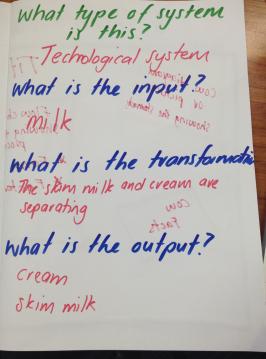 what type of system
is this?
Technological system
what is the input?
milk
what is the transformation
The skim milk and cream are
separating
what is the output?
cream
skim milk